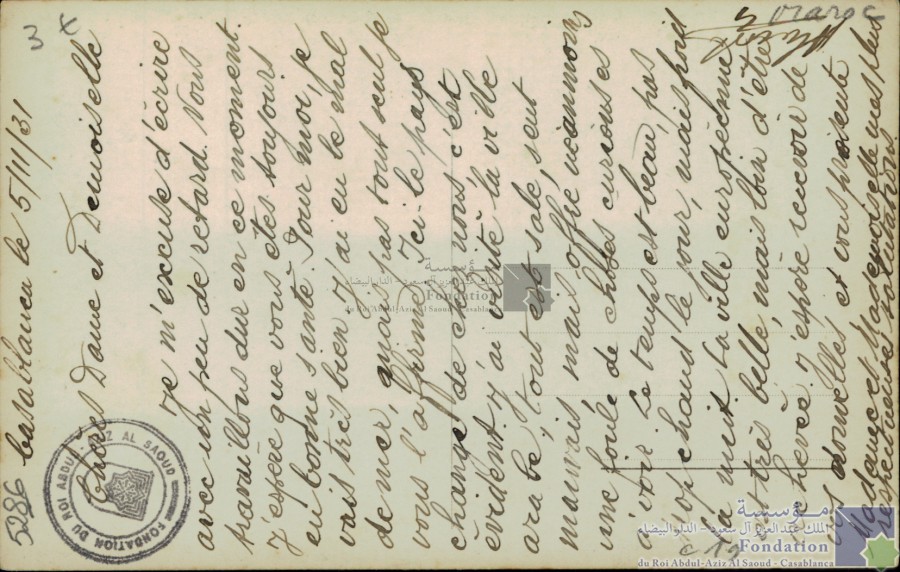 Casablanca le 5/11/31
Chères Dame et Demoiselle
Je m'excuse d'écrire
avec un peu de retard. Nous
travaillons dur en ce moment.
J'espère que vous êtes toujours
en bonne santé. Pour moi, je
vais très bien. J'ai eu le mal
de mer, mais pas tout seul je
vous l'affirme. Ici le pays
change de chez nous c'est
évident. J'ai visité la ville
arabe, tout est sale, sent
mauvais, mais offre néanmoins
une foule de choses curieuses
à voir. Le temps est beau, pas
trop chaud le jour, mais froid
la nuit. La ville européenne
est très belle, mais loin d'être
achevée. J'espère recevoir de
vos nouvelles et vous présente
Madame et Mademoiselle mes plus
respectueuses salutations.
Maroc
3 x
5286
FONDATION DU ROI ABDUL-AZIZ AL SAOUD
مؤسسة
الملك عبد العزيز آل سعود - الدار البيضاء
Fondation
du Roi Abdul-Aziz Al Saoud - Casablanca
مؤسسة
الملك عبد العزيز آل سعود - الدار البيضاء
Fondation
du Roi Abdul-Aziz Al Saoud - Casablanca